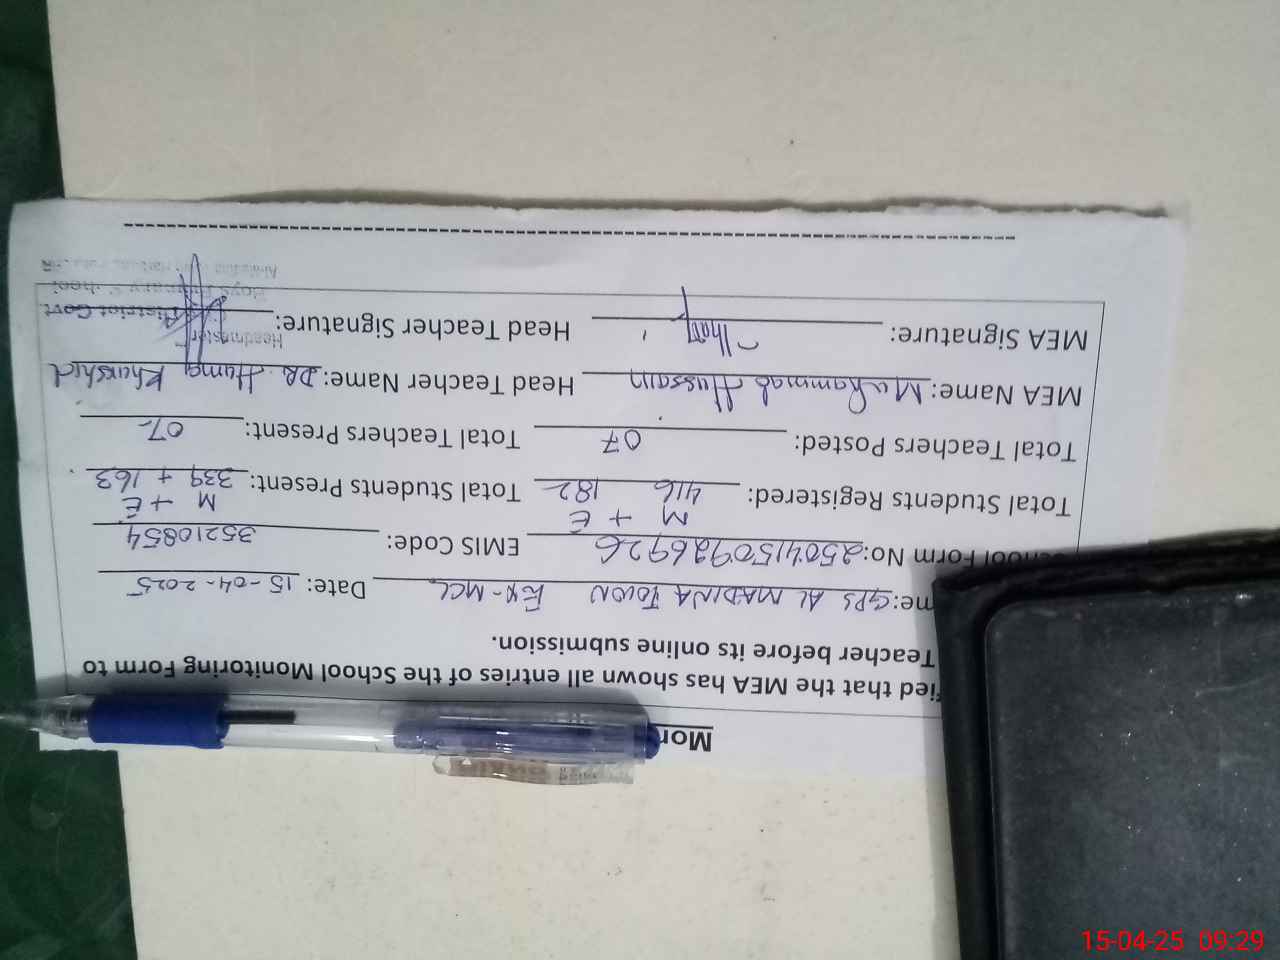 Mon
fied that the MEA has shown all entries of the School Monitoring Form to
Teacher before its online submission.
me: GPS AL MADINA TOWN EX-MCL Date: 15-04-2025
School Form No: 2504150926926 EMIS Code: 35210854
M + E M + E
Total Students Registered: 416 182 Total Students Present: 339 + 163
Total Teachers Posted: 07 Total Teachers Present: 07
MEA Name: Muhammad Hussain Head Teacher Name: DR. Huma Khurshid
MEA Signature: Head Teacher Signature:
Headmaster
District Govt
Boys Primary School
15-04-25 09:29